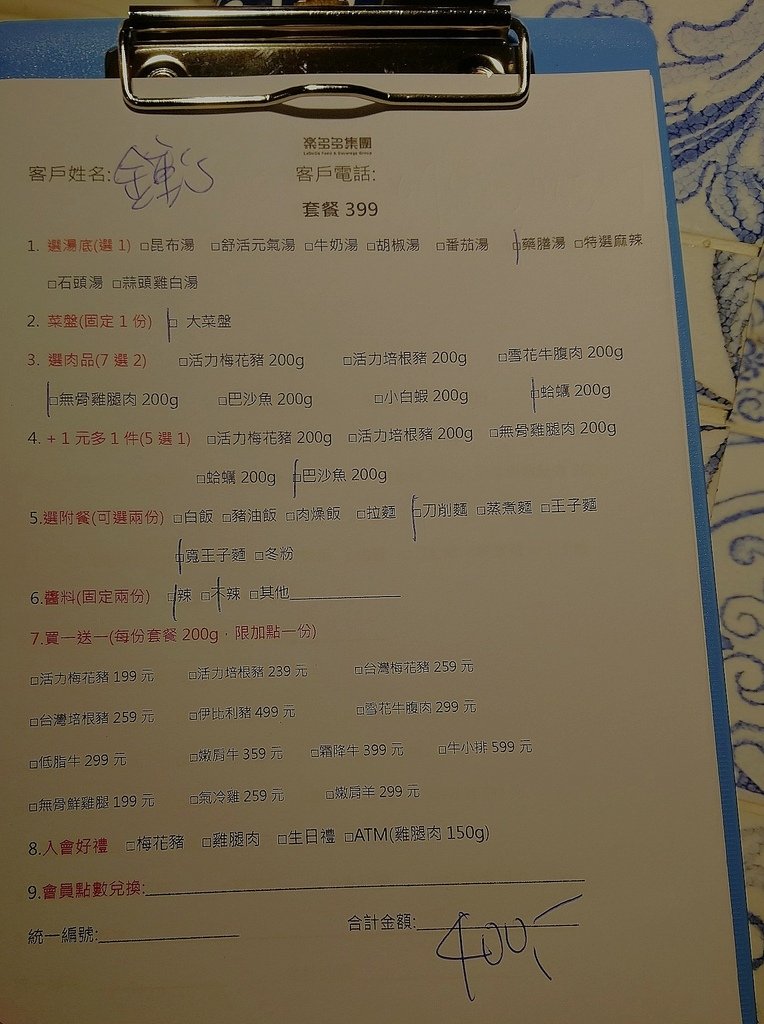 楽多多集團
客戶姓名: 客戶電話:
套餐 399
1. 選湯底(選 1) □昆布湯 □舒活元氣湯 □牛奶湯 □胡椒湯 □番茄湯 □藥膳湯 □特選麻辣
□石頭湯 □蒜頭雞白湯
2. 菜盤(固定 1 份) □ 大菜盤
3. 選肉品(7 選 2) □活力梅花豬 200g □活力培根豬 200g □雪花牛腹肉 200g
□無骨雞腿肉 200g □巴沙魚 200g □小白蝦 200g □蛤蠣 200g
4. +1 元多 1 件(5 選 1) □活力梅花豬 200g □活力培根豬 200g □無骨雞腿肉 200g
□蛤蠣 200g □巴沙魚 200g
5.選附餐(可選兩份) □白飯 □豬油飯 □肉燥飯 □拉麵 □刀削麵 □蒸煮麵 □王子麵
□寬王子麵 □冬粉
6.醬料(固定兩份) □辣 □不辣 □其他
7.買一送一(每份套餐 200g，限加點一份)
□活力梅花豬 199 元 □活力培根豬 239 元 □台灣梅花豬 259 元
□台灣培根豬 259 元 □伊比利豬 499 元 □雪花牛腹肉 299 元
□低脂牛 299 元 □嫩肩牛 359 元 □霜降牛 399 元 □牛小排 599 元
□無骨鮮雞腿 199 元 □氣冷雞 259 元 □嫩肩羊 299 元
8.入會好禮 □梅花豬 □雞腿肉 □生日禮 □ATM(雞腿肉 150g)
9.會員點數兌換:
統一編號: 合計金額: 400